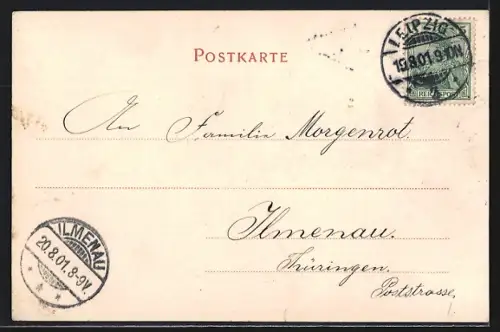 POSTKARTE
LEIPZIG
19.8.01.9-10N
REICHSPOST
An Familie Morgenrot.
Ilmenau.
Thüringen.
Poststrasse.
ILMENAU
20.8.01.8-9V.